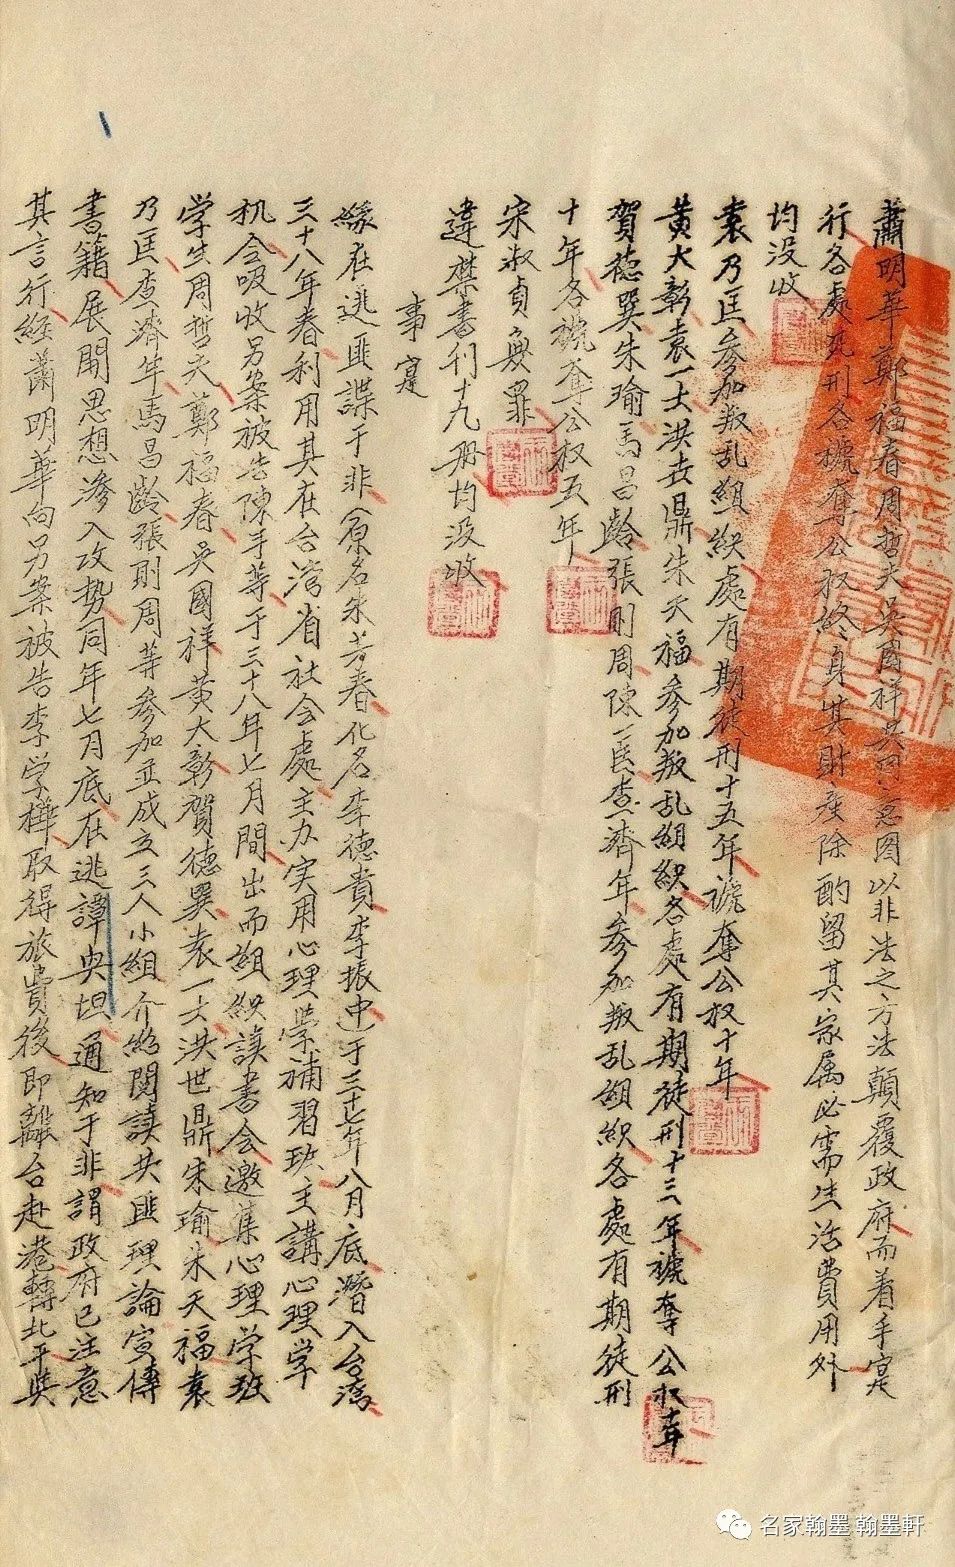 蕭明華鄭福春周哲夫吳國祥共同意圖以非法之方法顛覆政府而着手寔
行各處死刑各褫奪公权終身其財產除酌留其家属必需生活費用外
均没收
袁乃匡參加叛乱組織處有期徒刑十五年褫奪公权十年
黃大彰袁一士洪世鼎朱天福參加叛乱組織各處有期徒刑十三年褫奪公权十年
賀德巽朱瑜馬昌齡張則周陳一臣查濟年參加叛乱組織各處有期徒刑
十年各褫奪公权五年
宋淑貞無罪
違禁書刊十九册均没收
事寔
緣在逃匪諜于非(原名朱芳春化名李德貴李振中)于三十七年八月底潛入台灣
三十八年春利用其在台灣省社会處主办实用心理学補習班主講心理学
机会吸收另案被告陳手等于三十八年七月間出而組織讀書会邀集心理学班
学生周哲夫鄭福春吳國祥黃大彰賀德巽袁一士洪世鼎朱瑜朱天福袁
乃匡查濟年馬昌齡張則周等參加並成立三人小組介紹閱讀共匪理論宣傳
書籍展開思想滲入攻勢同年七月底在逃譚奥坦通知于非謂政府已注意
其言行經蕭明華向另案被告李学樺取得旅費後即離台赴港轉北平與
名家翰墨 翰墨軒